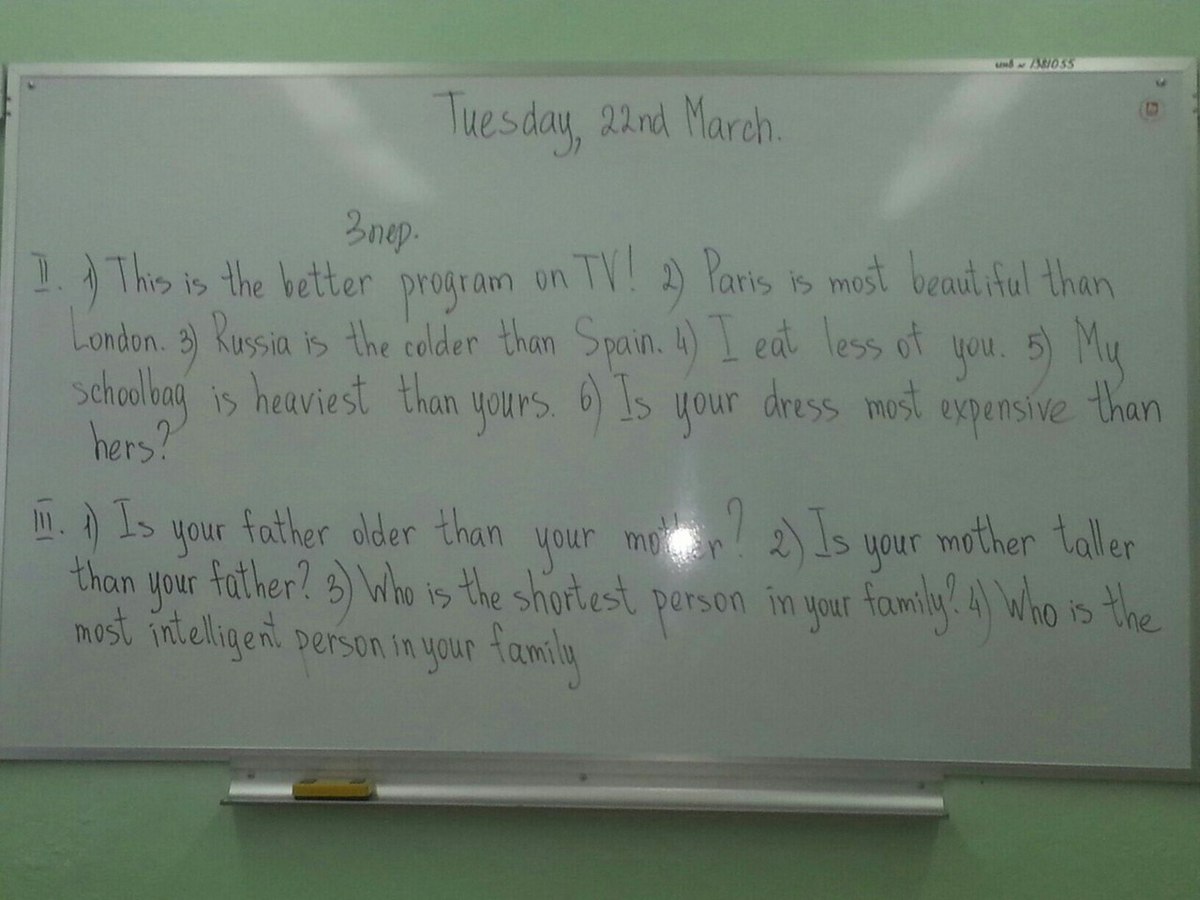 инв № 1381055
Tuesday, 22nd March.
3 пер.
II. 1) This is the better program on TV! 2) Paris is most beautiful than
London. 3) Russia is the colder than Spain. 4) I eat less of you. 5) My
schoolbag is heaviest than yours. 6) Is your dress most expensive than
hers?
III. 1) Is your father older than your mother? 2) Is your mother taller
than your father? 3) Who is the shortest person in your family? 4) Who is the
most intelligent person in your family